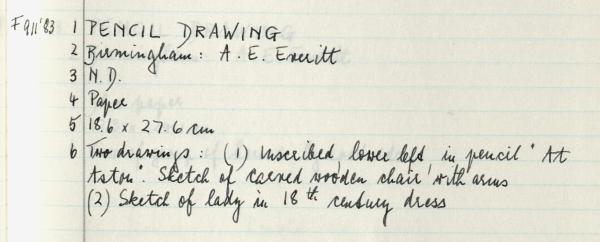 F911'83 1 PENCIL DRAWING
2 Birmingham: A. E. Everitt
3 N.D.
4 Paper
5 18.6 x 27.6 cm
6 Two drawings: (1) inscribed, lower left in pencil "At
Aston". Sketch of carved wooden chair with arms
(2) Sketch of lady in 18th century dress